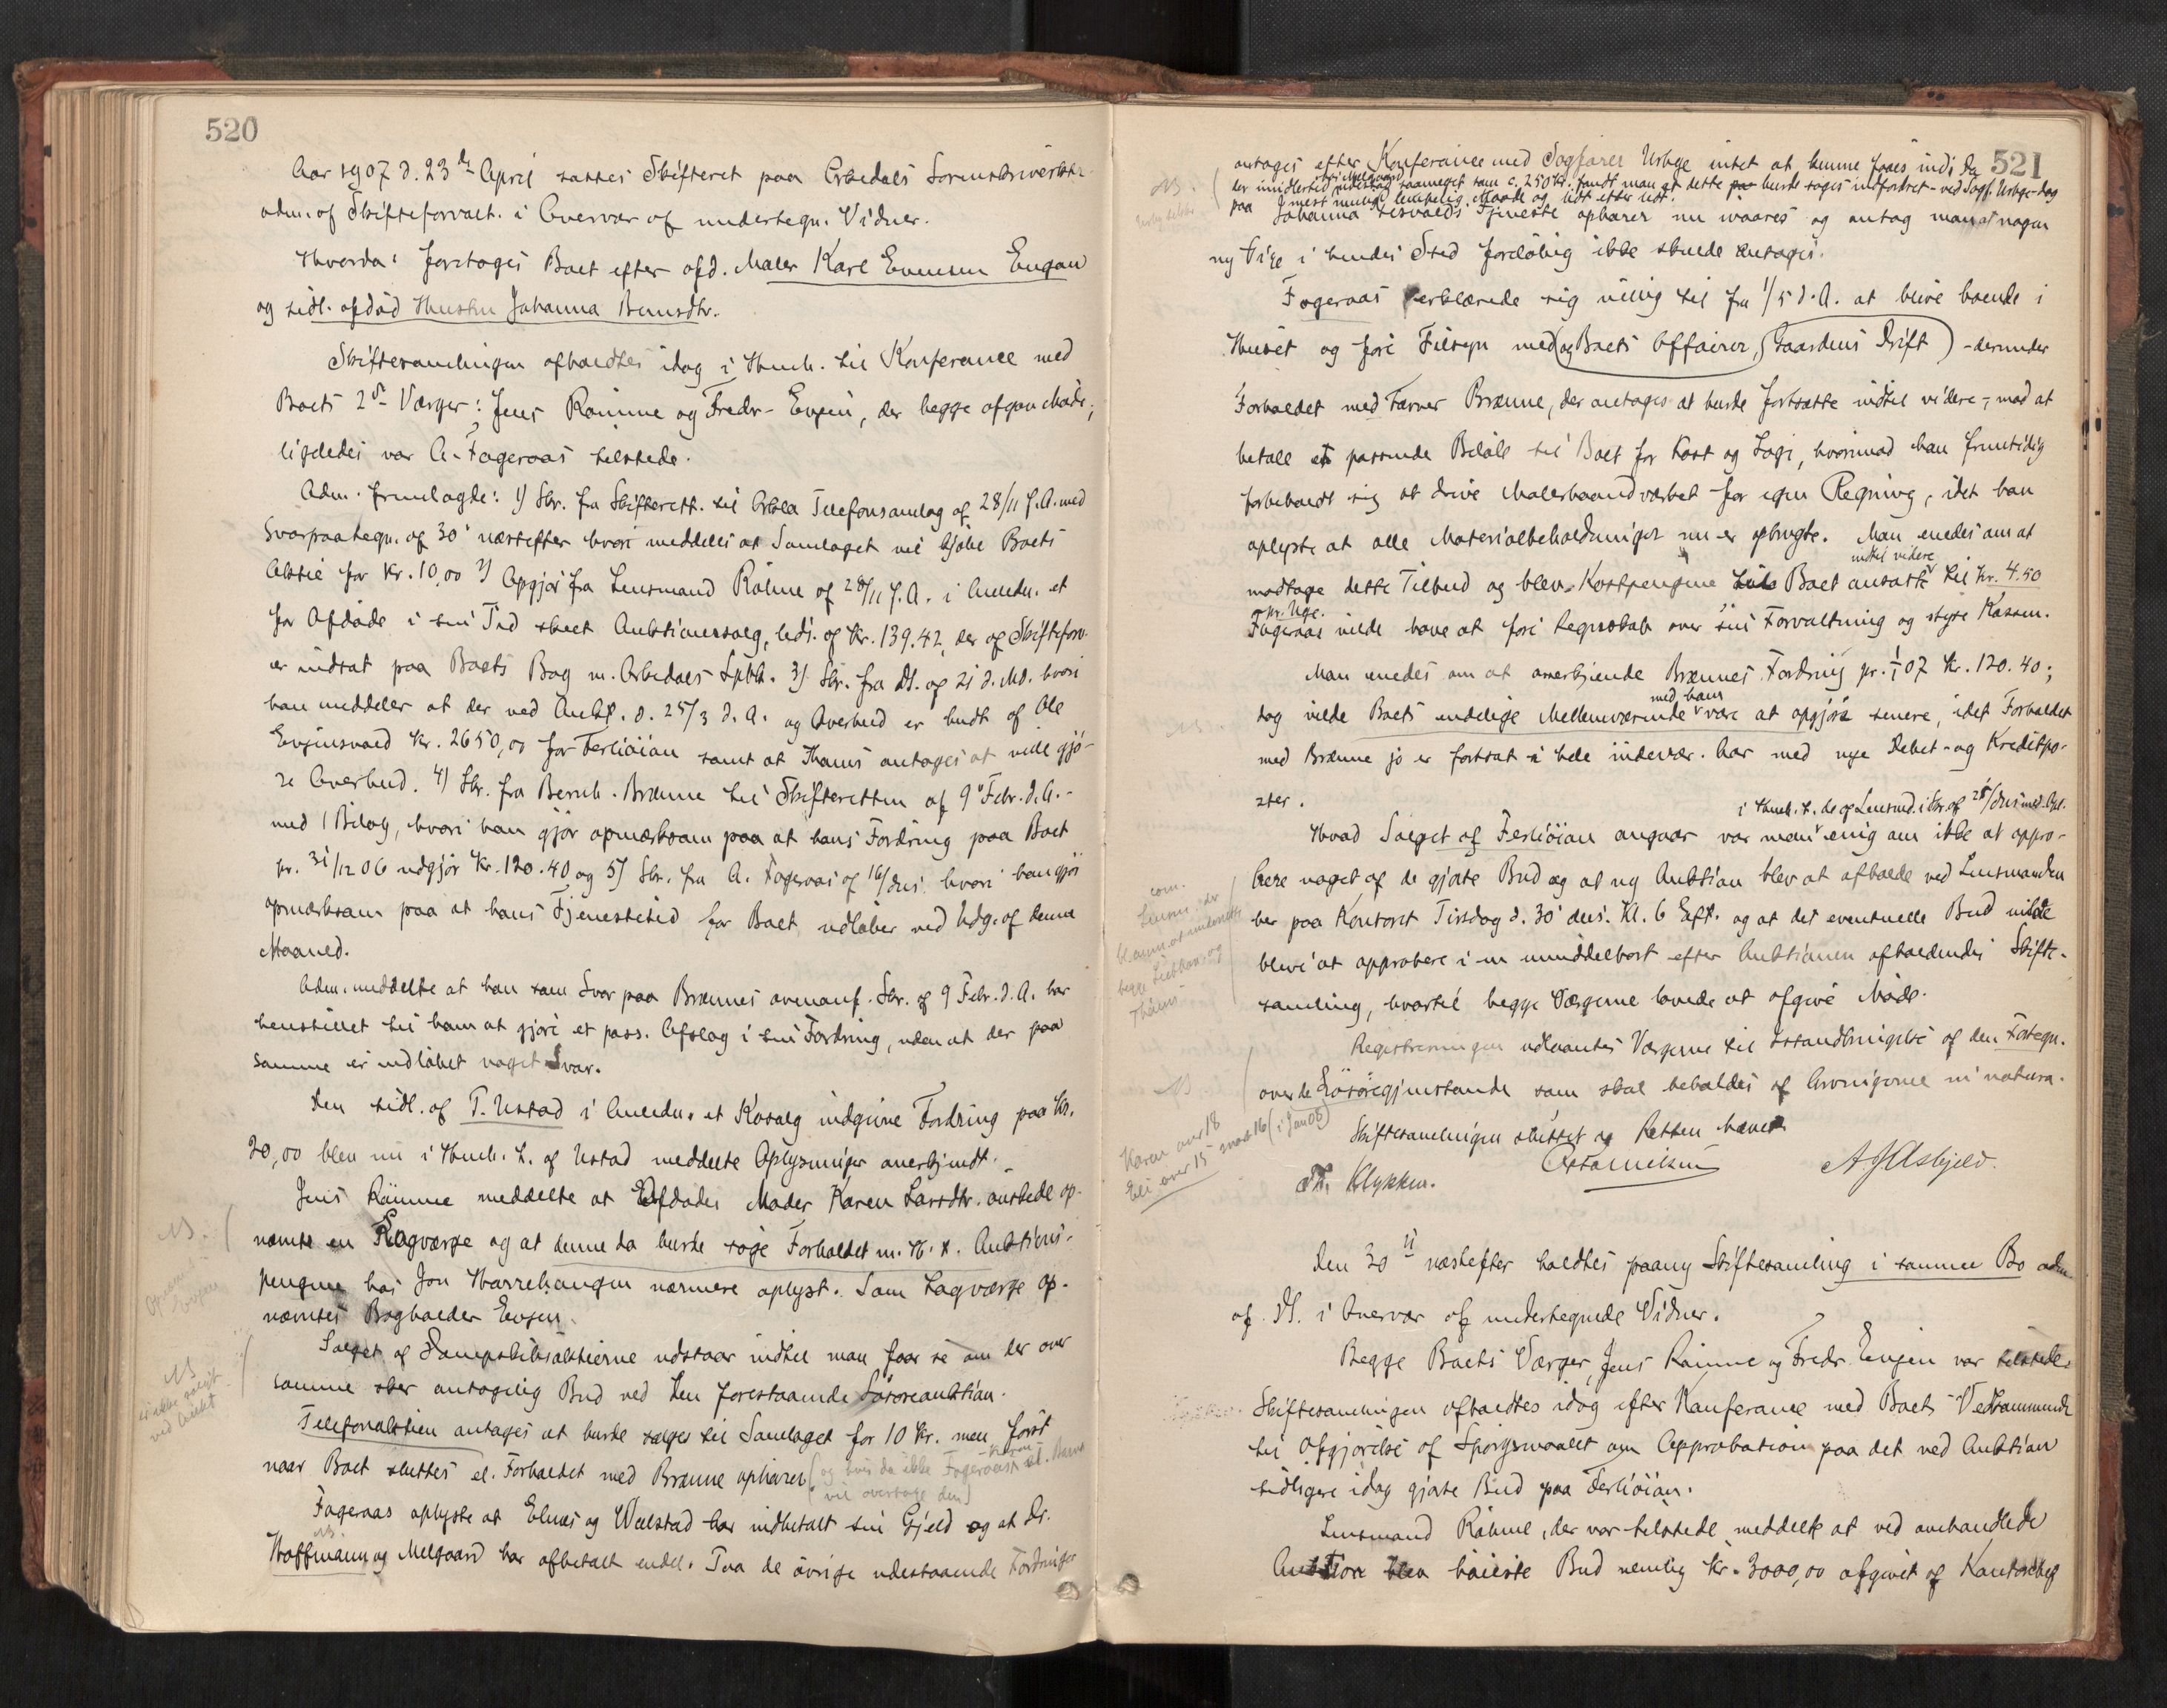 520
Aar 1907 d. 23de April sattes Skifteret paa Orkedals Sorenskriverktr.
adm. af Skifteforvalt. i Overvær af undertegn. Vidner.
Hvorda: foretoges Boet efter afd. Maler Karl Evensen Engan
og tidl. afdød Hustru Johanna Berntsdtr.
Skiftesamlingen afholdtes idag i Henh. til Konferance med
Boets 2de Værger: Jens Rømme og Fredr. Evjen, der begge afgav Møde;
ligeledes var A. Fageraas tilstede.
Adm. fremlagde: 1) Skr. fra Skifterett. til Orkla Telefonsamlag af 28/11 f.A. med
Svarpaategn. af 30' næstefter hvori meddeles at Samlaget vil kjøbe Boets
Aktie for Kr. 10,00 2) Opgjør fra Lensmand Råhme af 28/11 f.A. i Anledn. et
for Afdøde i sin Tid skeet Auktionssalg, lydt. af Kr. 139.42, der af Skifteforv.
er indsat paa Boets Bog m. Orkedals Spbk. 3) Skr. fra Ds. af 21 d. Md. hvori
han meddeler at der ved Aukt. d. 25/3 d.A. og Overbud er budt af Ole
Evjensvold Kr. 2650,00 for Ferliöian samt at Thams antages at ville gjø-
re Overbud. 4) Skr. fra Bernh. Brænne til Skifteretten af 9' Febr. d.A. -
med 1 Bilag, hvori han gjør opmærksom paa at hans Fordring paa Boet
pr. 31/12 06 udgjør Kr. 120.40 og 5) Skr. fra A. Fageraas af 16/ds. hvori han gjør
opmærksom paa at hans Fjenestetid for Boet udløber ved Udg. af denne
Maaned.
Adm. meddelte at han som Svar paa Brænnes ovennf. Skr. af 9 Febr. d.A. har
henstillet til ham at gjøre et pass. Afslag i sin Fordring, uden at der paa
samme er indløbet noget Svar.
Den tidl. af T. Ustad i Anledn. et Kosalg indgivne Fordring paa Kr.
20,00 blev nu i Henh. t. af Ustad meddelte Oplysninger anerkjendt.
Jens Rømme meddelte at Afdødes Moder Karen Larsdtr. ønskede op-
NB.
nævnt en Lagværge og at denne da burde søge Forholdet m. H. t. Auktions-
pengene hos Jon Harrehaugen nærmere oplyst. Som Lagværge op-
nævntes Bogholder Evjen.
Salget af Dampskibsaktierne udstaar indtil man faar se om der over
NB
samme sker antagelig Bud ved den forestaaende Løsøreauktion.
Telefonaktien antages at burde sælges til Samlaget for 10 Kr. men først
naar Boet sluttes el. Forholdet med Brænne ophører (og hvis da ikke Fageraas
vil overtage den)
Fageraas oplyste at Elnæs og Wulstad har indbetalt sin Gjeld og at Dr.
Hoffmann og Melgaard har afbetalt endel. Paa de øvrige udestaaende Fordringer
521
antages efter Konferance med Sagfører Urbye intet at kunne faaes indi da
hos Melgaard
der imidlertid udestaar saameget som c. 250 Kr. fandt man at dette burde søges indfordret - ved Sagf. Urbye - dog
NB.
paa mest mulig lempelig Maade og lidt efter lidt.
Johanna Resvolds Tjeneste ophører nu ivaares og antog man at nogen
ny Pige i hendes Sted foreløbig ikke skulde antages.
Fageraas erklærede sig villig til fra 1/5 d.A. at blive boende i
Huset og føre Tilsyn med (og Boets Affairer, Gaardens Drift) - derunder
Forholdet med Farver Brænne, der antages at burde fortsætte indtil videre -, mod at
betale et passende Beløb til Boet for Kost og Logi, hvorimod han fremtidig
forbeholdt sig at drive Malerhaandværket for egen Regning, idet han
oplyste at alle Materialbeholdninger nu er opbrugte. Man enedes om at
indtil videre
modtage dette Tilbud og blev Kostpengene til Boet ansat til Kr. 4.50
pr. Uge.
Fageraas vilde have at føre Regnskab over sin Forvaltning og styre Kassen.
Man enedes om at anerkjende Brænnes Fordring pr. 1/1 07 Kr. 120.40;
med ham
dog vilde Boets endelige Mellemværende være at opgjøre senere, idet Forholdet
med Brænne jo er fortsat i hele indevær. Aar med nye Debet- og Kreditpo-
ster.
i Henh. t. de af Lensmd. i Skr. af
Hvad Salget af Ferliöian angaar var man enig om ikke at appro-
bere noget af de gjorte Bud og at ny Auktion blev at afholde ved Lensmanden
her paa Kontoret Tirsdag d. 30' ds. Kl. 6 Eft. og at det eventuelle Bud vilde
blive at approbere i en umiddelbart efter Auktionen afholdendes Skifte-
samling, hvortil begge Værgerne lovede at afgive Møde.
Registreringen udlaantes Værgerne til Istandbringelse af den Fortegn.
NB
over de Løsøregjenstande som skal beholdes af Arvingerne in natura.
Karen over 18
Eli over 15 snart 16 (i Jan 08)
Skiftesamlingen sluttet og Retten hævet.
Th. Klykken.
A J Asbjeld.
Den 30te næstefter holdtes paany Skiftesamling i samme Bo adm.
af Ds. i Overvær af undertegnede Vidner.
Begge Boets Værger, Jens Rømme og Fredr. Evjen var tilstede.
Skiftesamlingen afholdtes idag efter Konferance med Boets Vedkommende
til Afgjørelse af Spørgsmaalet om Approbation paa det ved Auktion
tidligere idag gjorte Bud paa Ferliöian.
Lensmand Råhme, der var tilstede, meddelte at ved omhandlede
Auktion blev høieste Bud nemlig Kr. 3000,00 afgivet af Kontorchef